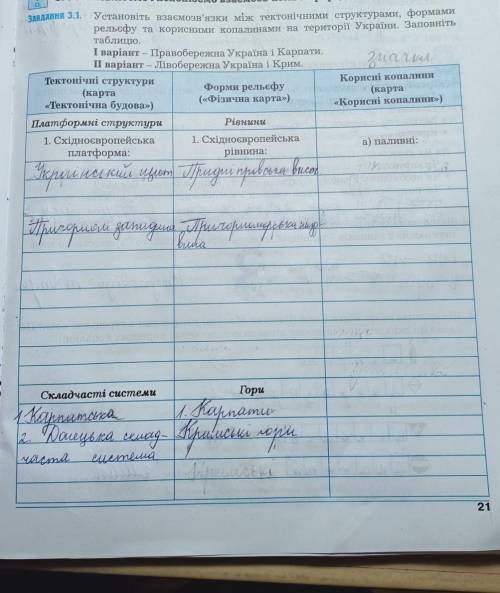 ЗАВДАННЯ 3.1. Установіть взаємозв'язки між тектонічними структурами, формами
рельєфу та корисними копалинами на території України. Заповніть
таблицю.
І варіант – Правобережна Україна і Карпати.
ІІ варіант – Лівобережна Україна і Крим.
значки
Тектонічні структури
(карта
«Тектонічна будова»)
Форми рельєфу
(«Фізична карта»)
Корисні копалини
(карта
«Корисні копалини»)
Платформні структури
Рівнини
1. Східноєвропейська
платформа:
1. Східноєвропейська
рівнина:
а) паливні:
Український щит
Придніпровська височ
Причорном западина
Причорноморська низо-
вина
Складчасті системи
Гори
1. Карпатська
1. Карпати
2. Донецька склад-
Кримські гори
часта система
21